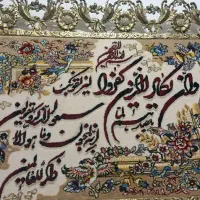 وان یکاد الذین کفروا لیزلقونک
بابصارهم لما سمعوا الذکر و یقولون
انه لمجنون و ما هو الا
ذکر للعالمین